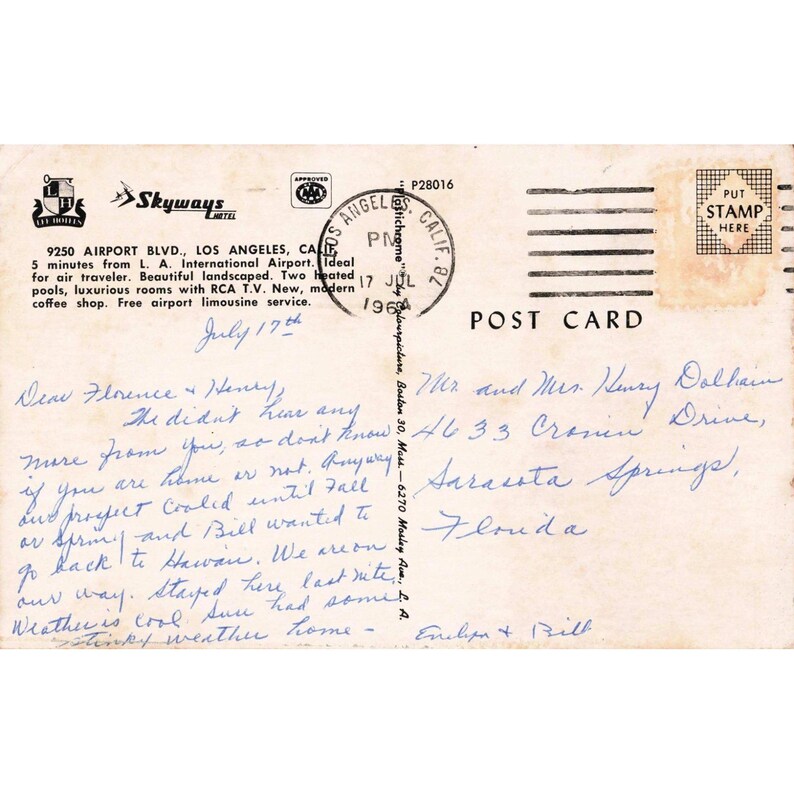 L H
LEE HOTELS
Skyways
HOTEL
APPROVED
AAA
9250 AIRPORT BLVD., LOS ANGELES, CALIF.
5 minutes from L. A. International Airport. Ideal
for air traveler. Beautiful landscaped. Two heated
pools, luxurious rooms with RCA T.V. New, modern
coffee shop. Free airport limousine service.
July 17th
Dear Florence & Henry,
We didn't hear any
more from you, so don't know
if you are home or not. Anyway
our prospect cooled until Fall
or Spring and Bill wanted to
go back to Hawaii. We are on
our way. Stayed here last nite.
Weather is cool. Sure had some
stinky weather home -
"Plastichrome" ® by Colourpicture, Boston 30, Mass. — 6270 Mosley Ave., L. A.
P28016
LOS ANGELES, CALIF. 7B
PM
17 JUL
1964
PUT
STAMP
HERE
POST CARD
Mr. and Mrs. Henry Dolhain
4633 Cronin Drive,
Sarasota Springs,
Florida
Evelyn & Bill